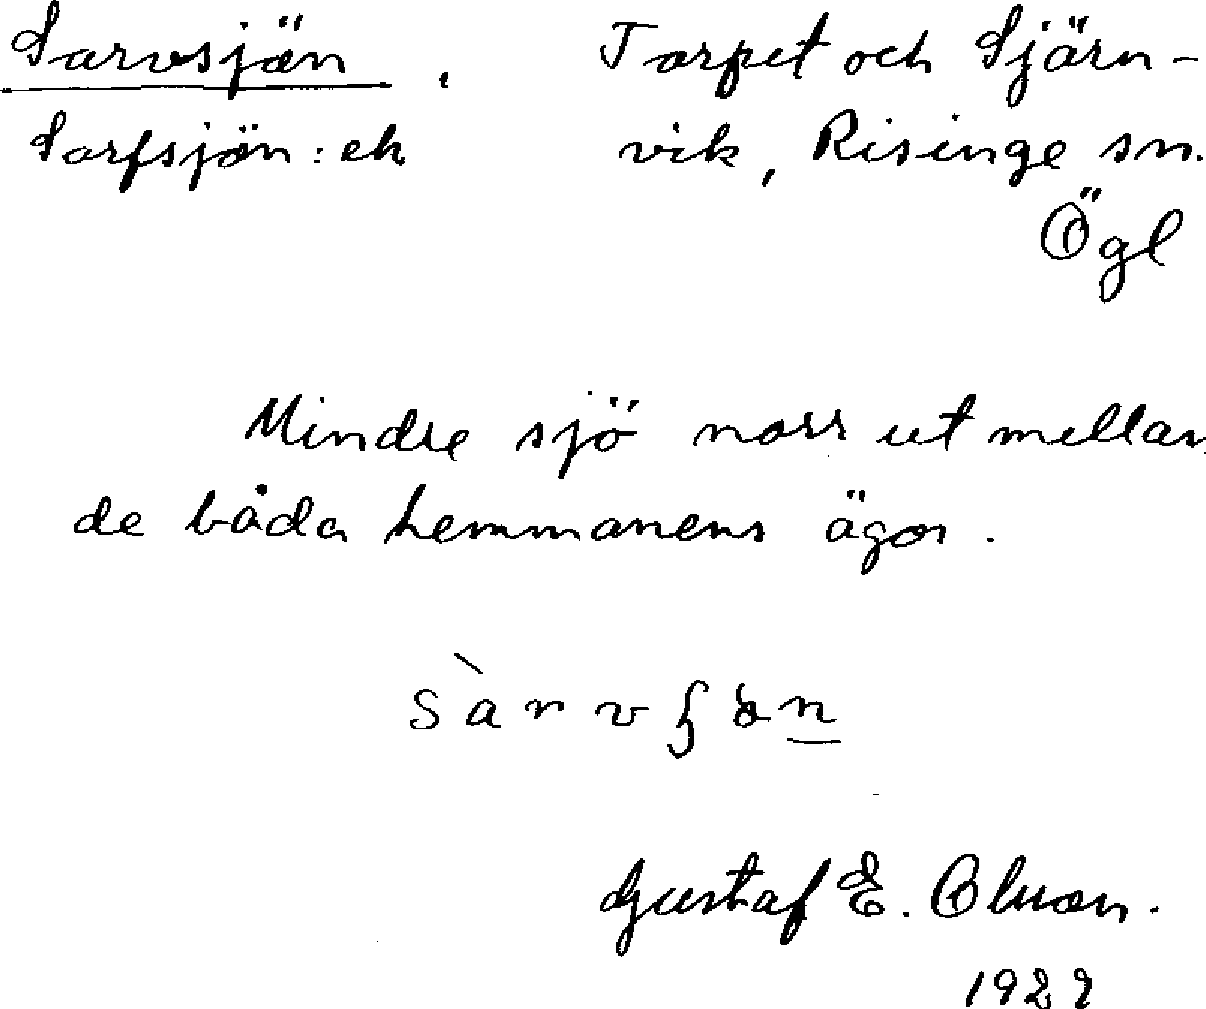 Sarvsjön . Torpet och Stjärn-
Sarfsjön: ek vik, Risinge sn.
Ögl
Mindre sjö norr ut mellan
de båda hemmanens ägor.
Gustaf E.
192